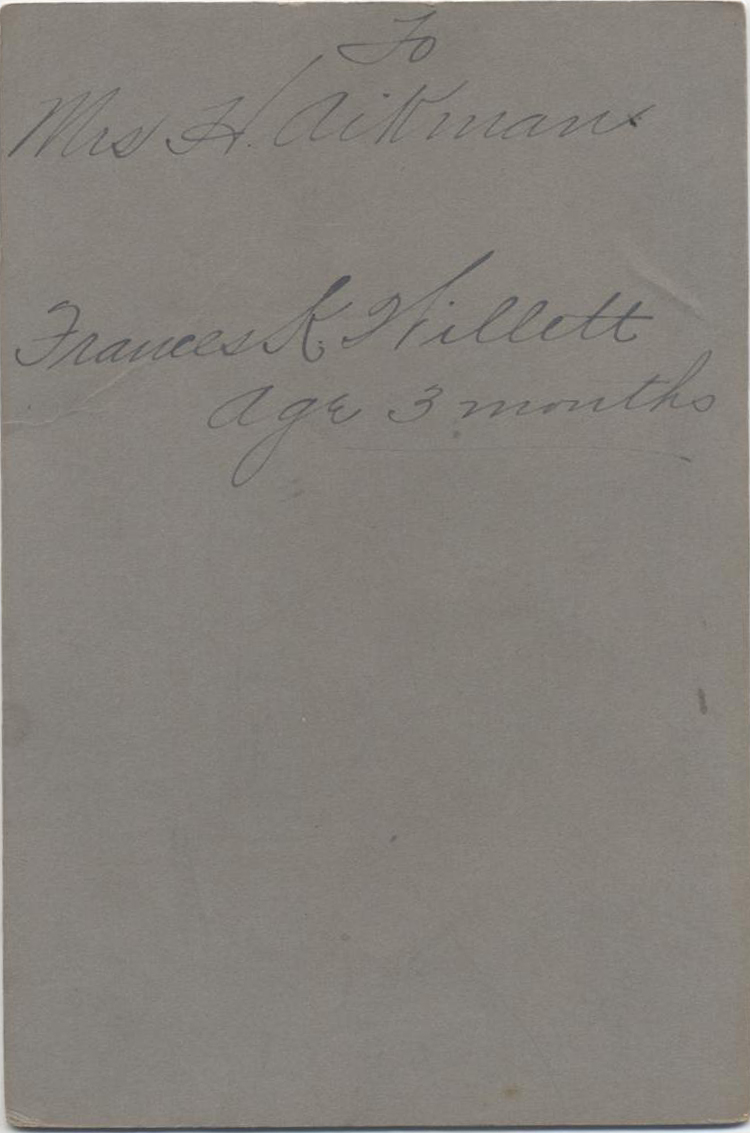 To
Mrs H. Aikman
Frances K. Willett
Age 3 months